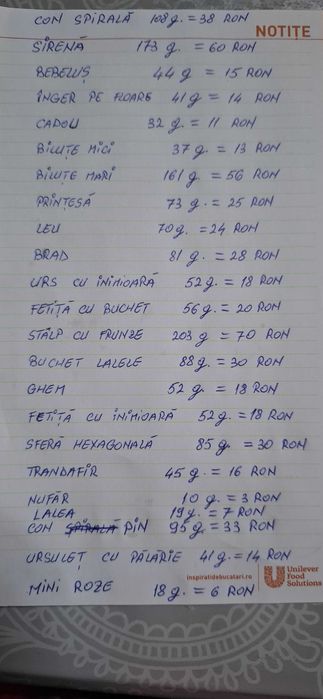 CON SPIRALĂ 108 g. = 38 RON
NOTIȚE
SIRENĂ 173 g. = 60 RON
BEBELUȘ 44 g = 15 RON
ÎNGER PE FLOARE 41 g = 14 RON
CADOU 32 g. = 11 RON
BILUȚE MICI 37 g. = 13 RON
BILUȚE MARI 161 g. = 56 RON
PRINȚESĂ 73 g. = 25 RON
LEU 70 g. = 24 RON
BRAD 81 g. = 28 RON
URS CU INIMIOARĂ 52 g. = 18 RON
FETIȚĂ CU BUCHET 56 g. = 20 RON
STÂLP CU FRUNZE 203 g = 70 RON
BUCHET LALELE 88 g. = 30 RON
GHEM 52 g. = 18 RON
FETIȚĂ CU INIMIOARĂ 52 g. = 18 RON
SFERĂ HEXAGONALĂ 85 g. = 30 RON
TRANDAFIR 45 g. = 16 RON
NUFĂR 10 g. = 3 RON
LALEA 19 g. = 7 RON
CON SPIRALĂ PIN 95 g. = 33 RON
URSULEȚ CU PĂLĂRIE 41 g. = 14 RON
inspiratidebucatari.ro
Unilever
Food
Solutions
MINI ROZE 18 g. = 6 RON